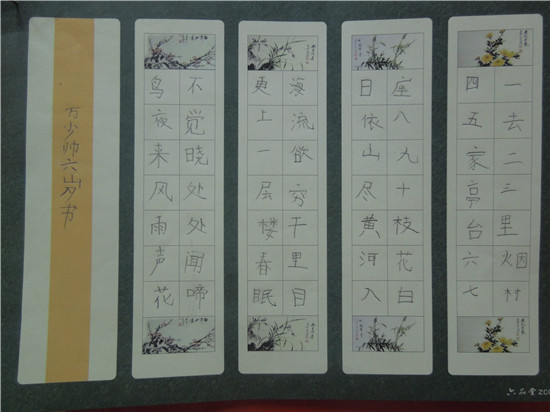 一去二三里烟村
四五家亭台六七
座八九十枝花白
日依山尽黄河入
海流欲穷千里目
更上一层楼春眠
不觉晓处处闻啼
鸟夜来风雨声花
万少帅六岁书
六品堂